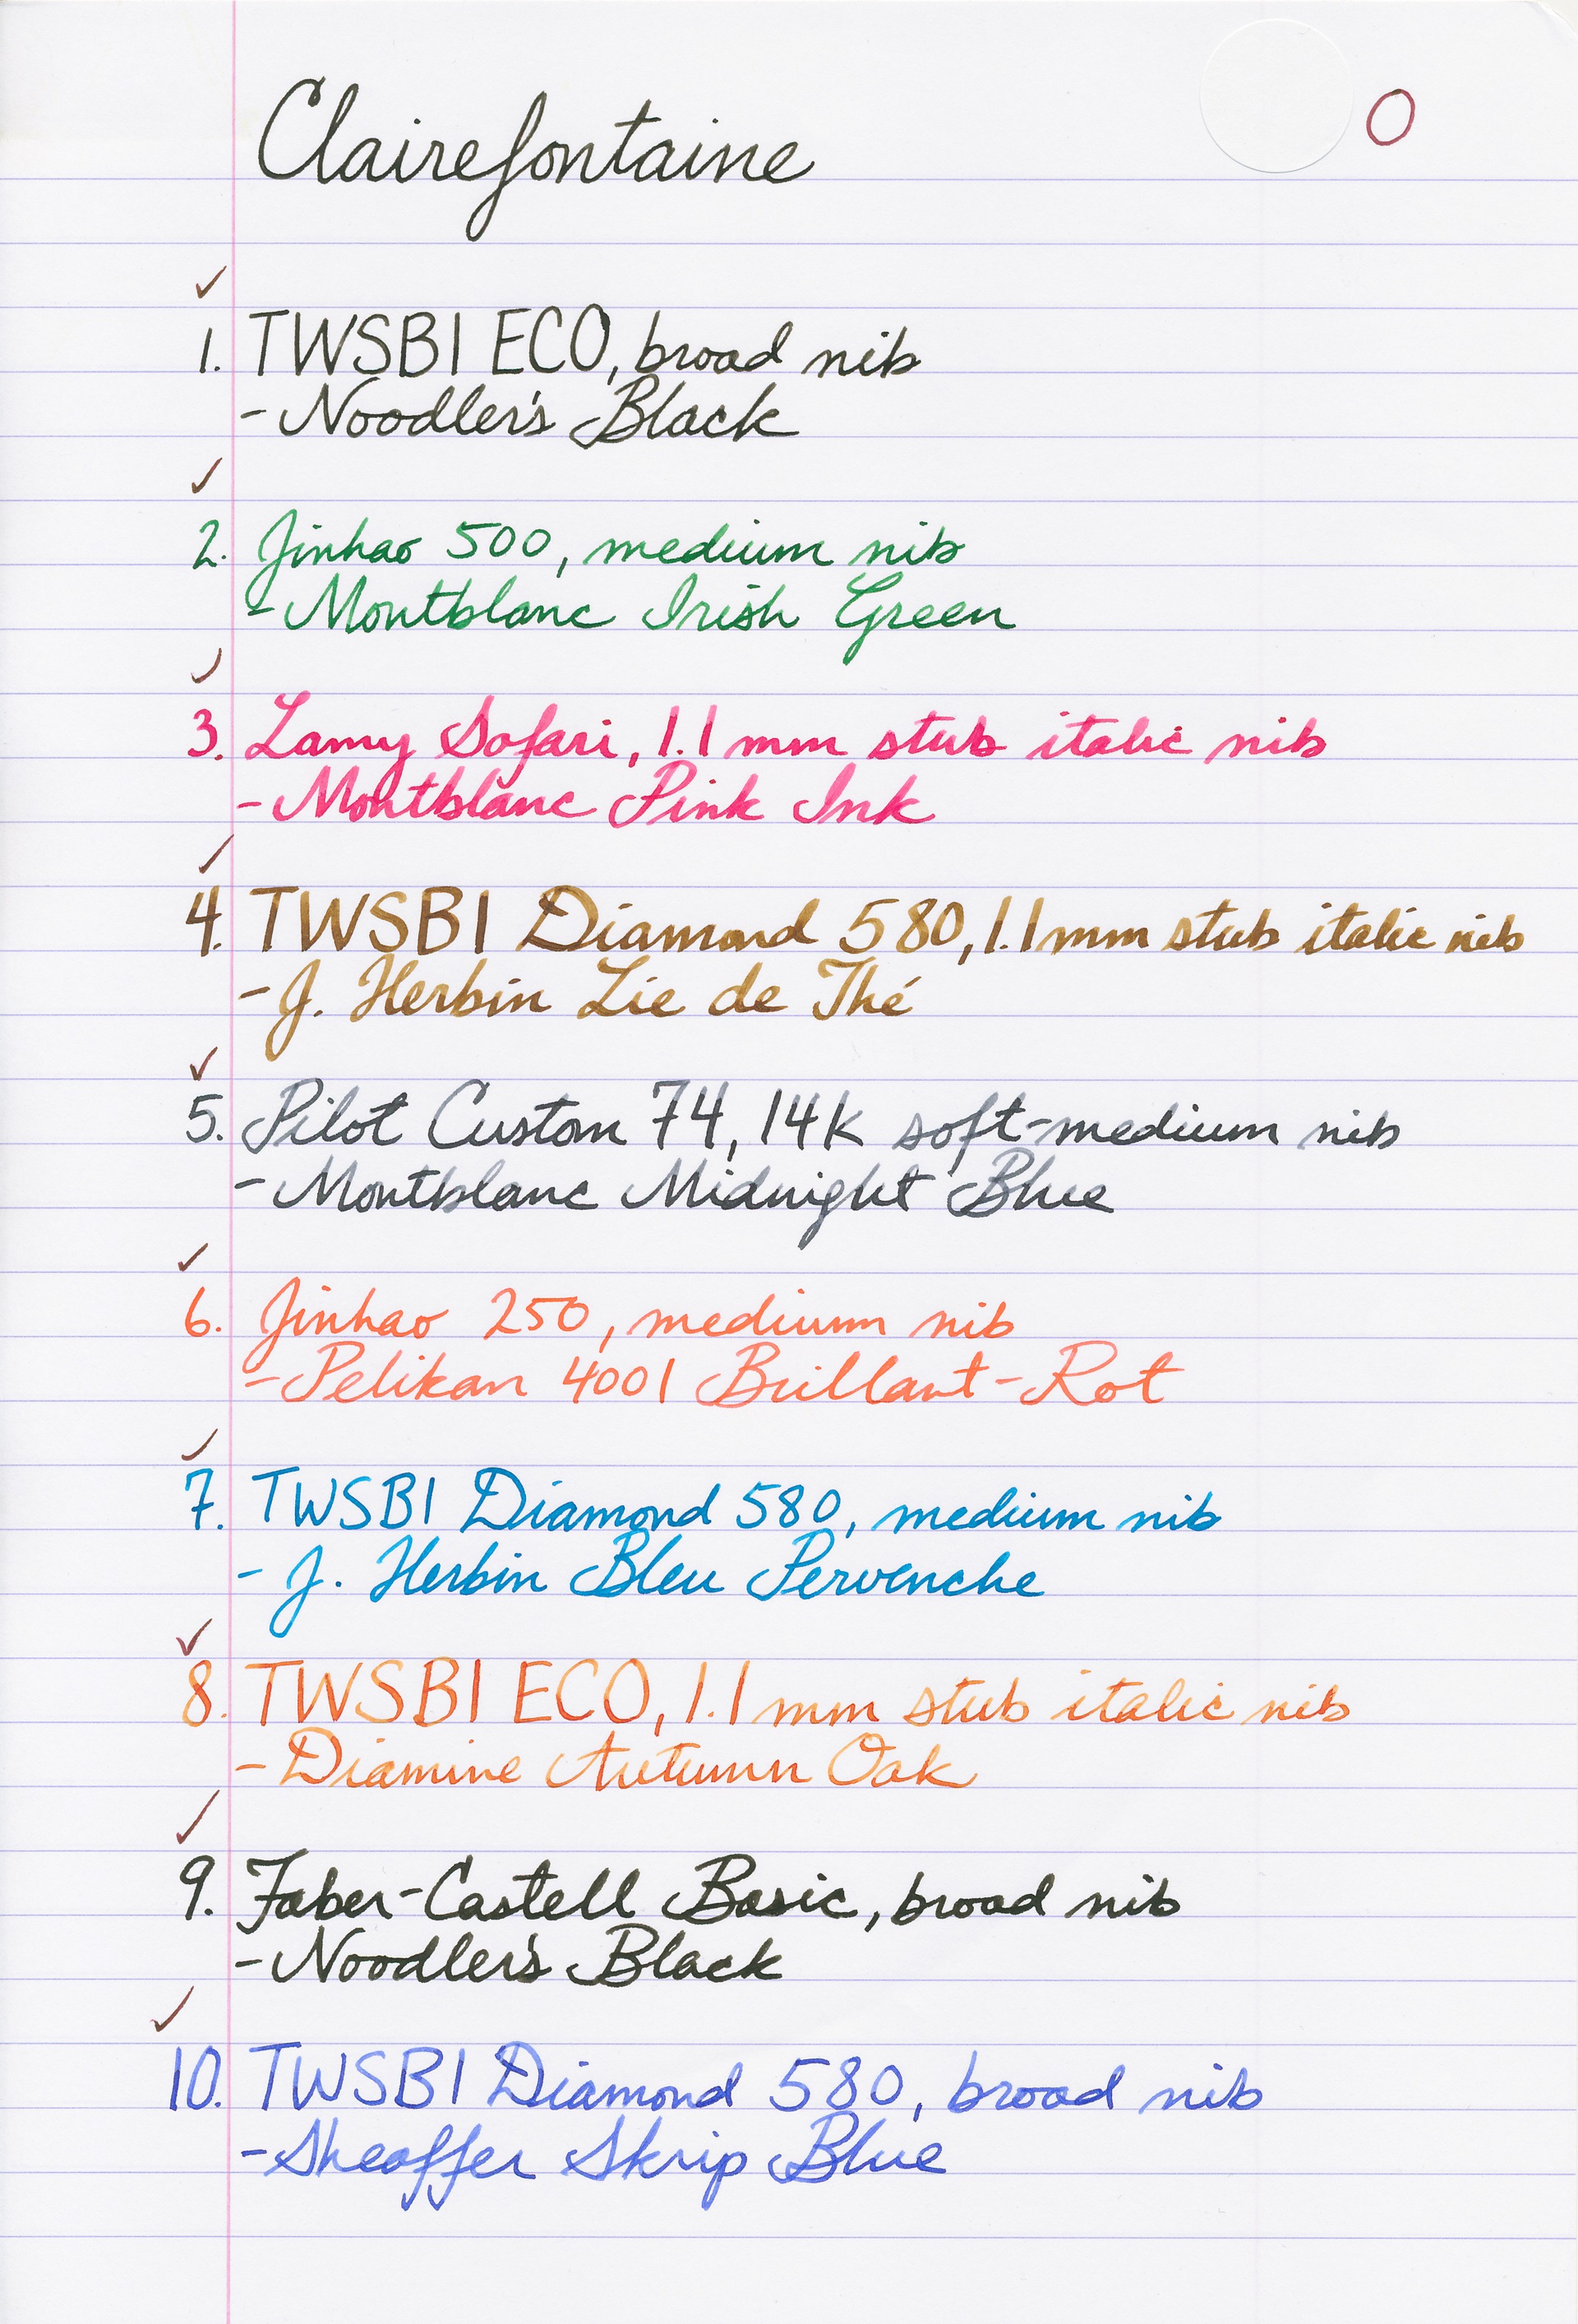 Clairefontaine
O
✓
1. TWSBI ECO, broad nib
- Noodler's Black
✓
2. Jinhao 500, medium nib
- Montblanc Irish Green
✓
3. Lamy Safari, 1.1 mm stub italic nib
- Montblanc Pink Ink
✓
4. TWSBI Diamond 580, 1.1 mm stub italic nib
- J. Herbin Lie de Thé
✓
5. Pilot Custom 74, 14k soft-medium nib
- Montblanc Midnight Blue
✓
6. Jinhao 250, medium nib
- Pelikan 4001 Brillant-Rot
✓
7. TWSBI Diamond 580, medium nib
- J. Herbin Bleu Pervenche
✓
8. TWSBI ECO, 1.1 mm stub italic nib
- Diamine Autumn Oak
✓
9. Faber-Castell Basic, broad nib
- Noodler's Black
✓
10. TWSBI Diamond 580, broad nib
- Sheaffer Skrip Blue